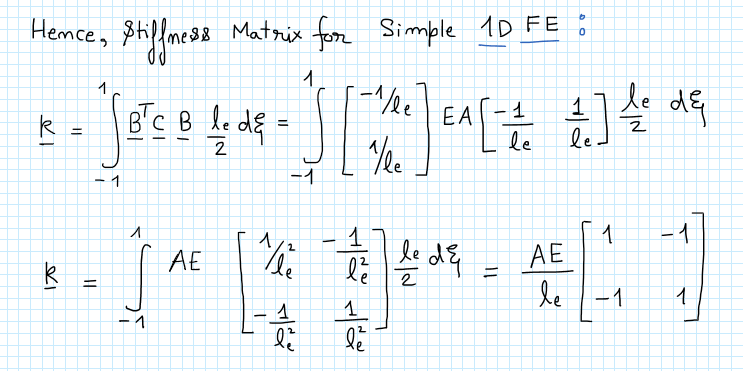 Hence, Stiffness Matrix for Simple 1D FE :
k = ∫_{-1}^{1} B^T C B l_e/2 dξ = ∫_{-1}^{1} [-1/l_e ; 1/l_e] EA [-1/l_e  1/l_e] l_e/2 dξ
k = ∫_{-1}^{1} AE [1/l_e^2  -1/l_e^2 ; -1/l_e^2  1/l_e^2] l_e/2 dξ = AE/l_e [1  -1 ; -1  1]